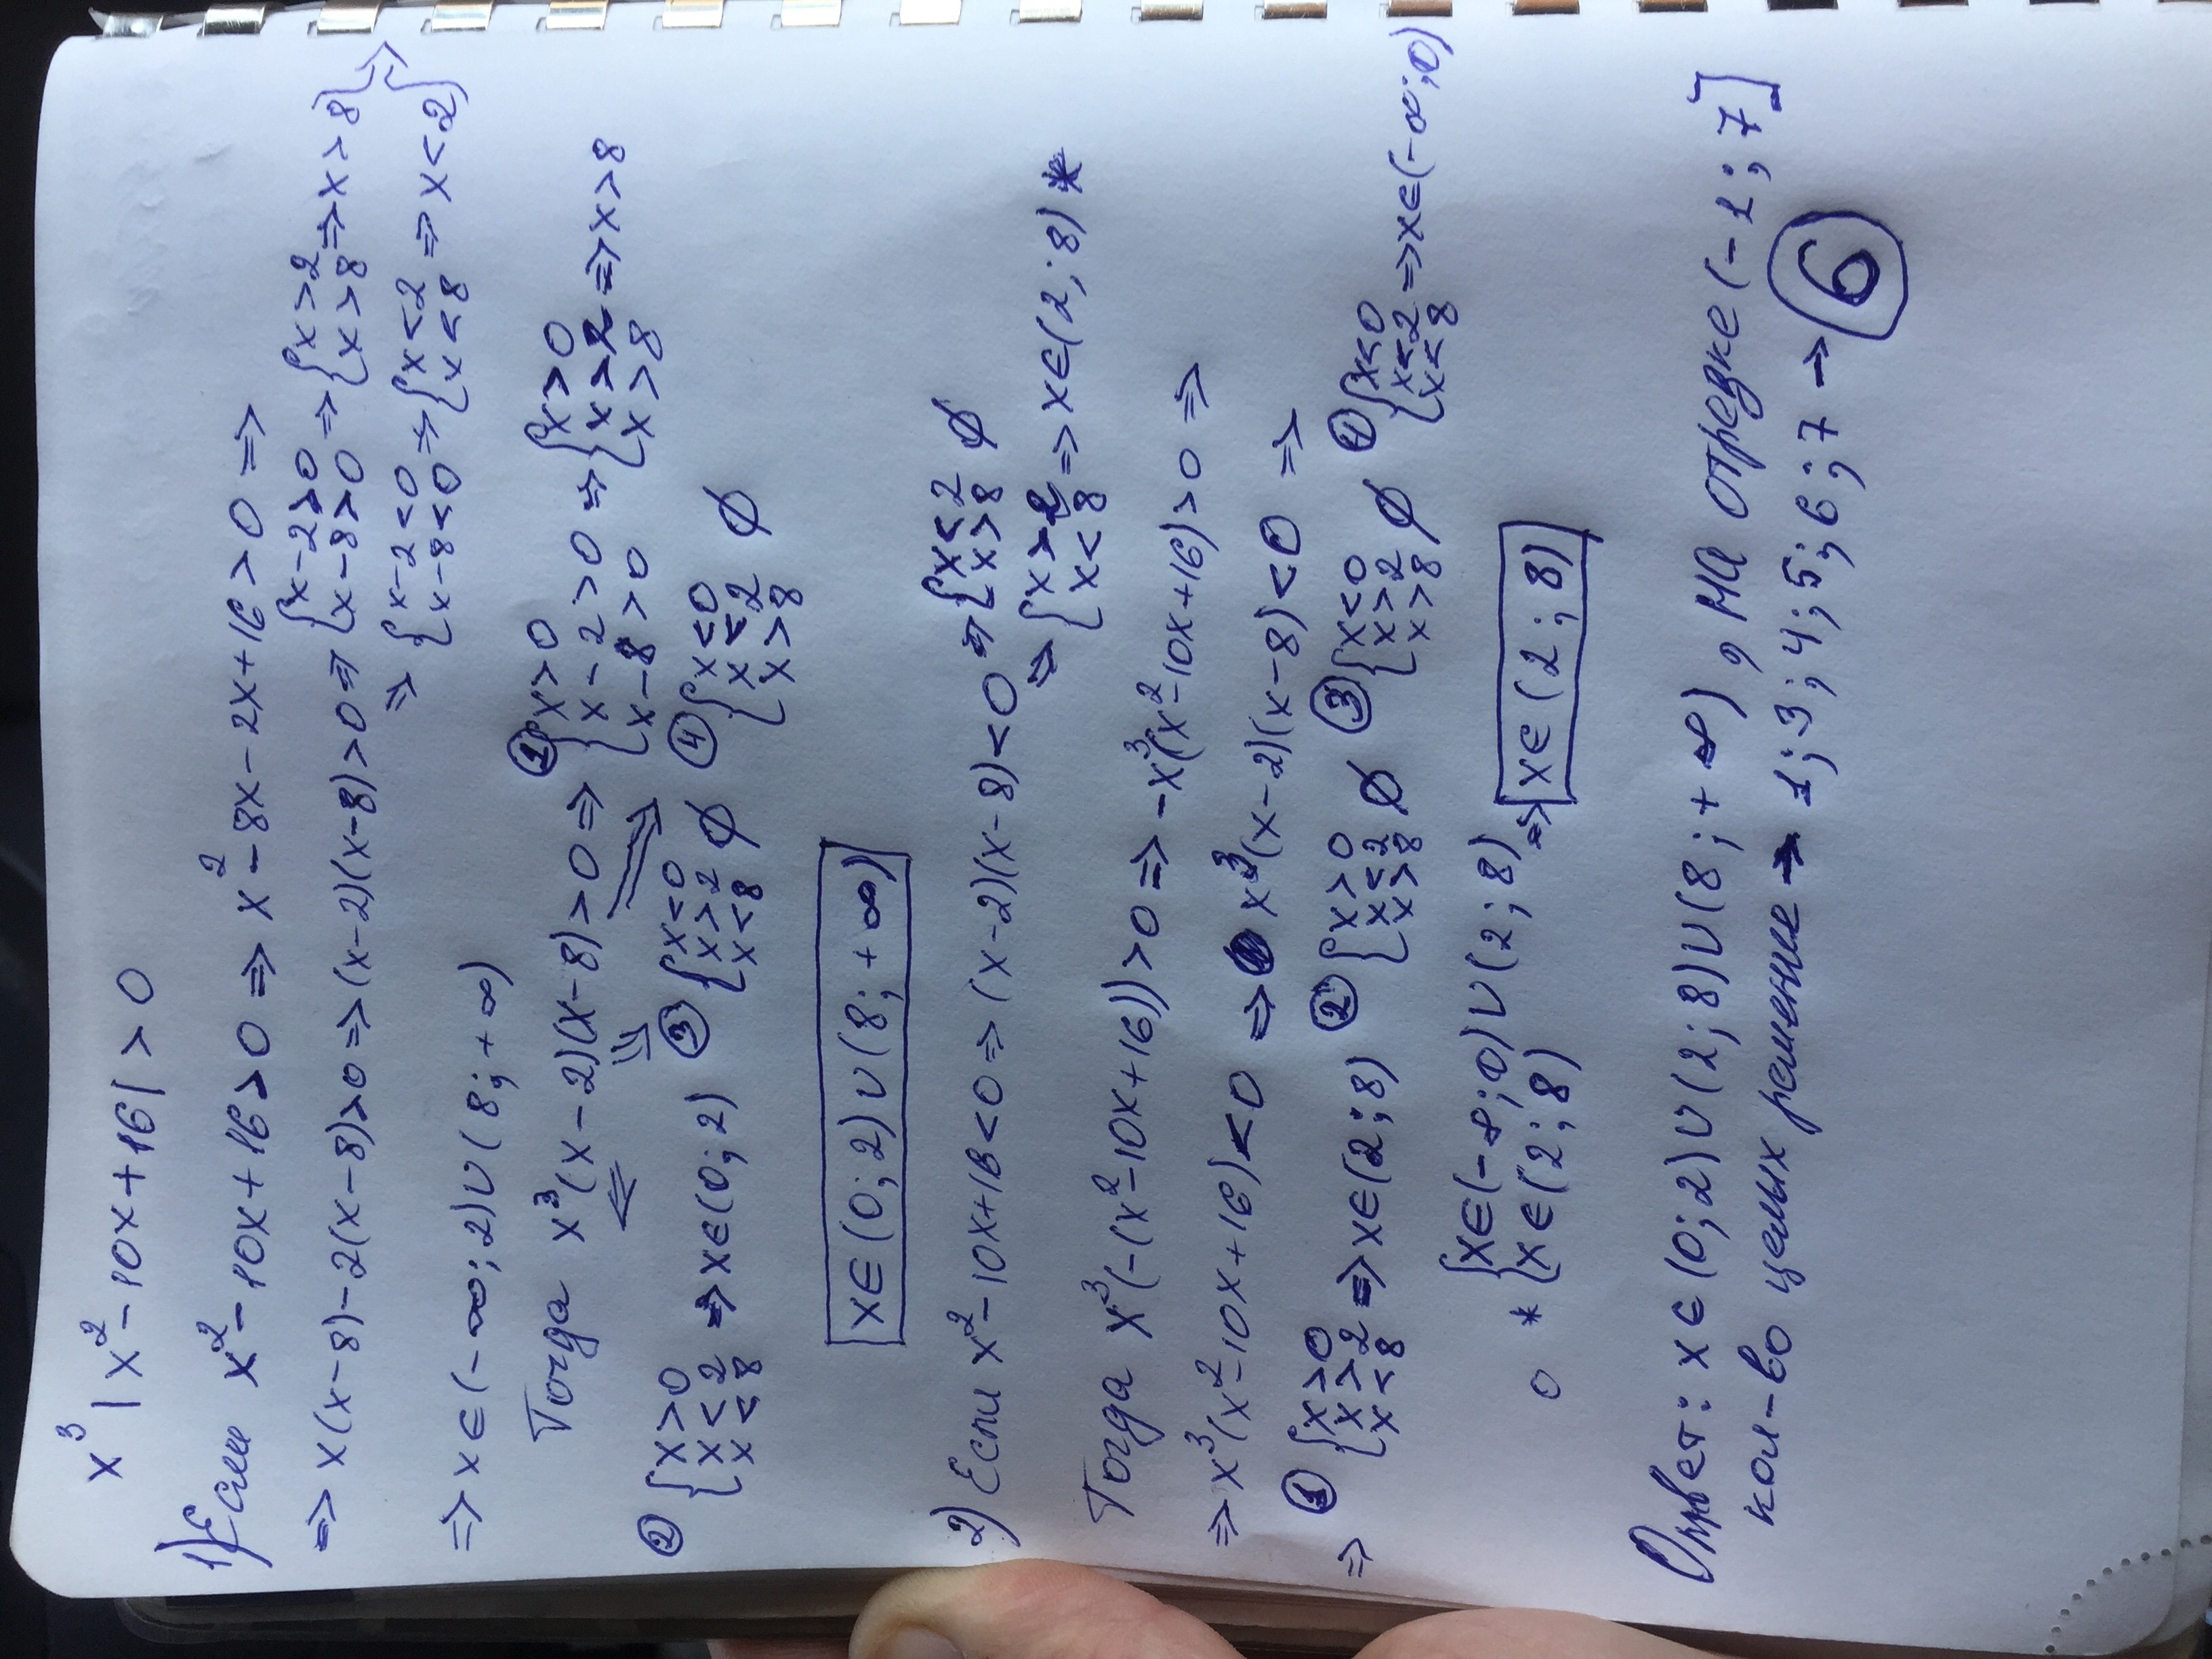 x³|x²-10x+16|>0
1) Если x²-10x+16>0 ⇒ x²-8x-2x+16>0 ⇒
⇒ x(x-8)-2(x-8)>0 ⇒ (x-2)(x-8)>0 ⇒ {x-2>0 x-8>0 ⇒ {x>2 x>8 ⇒ x>8 ⇒
⇒ {x-2<0 x-8<0 ⇒ {x<2 x<8 ⇒ x<2
⇒ x∈(-∞;2)∪(8;+∞)
Тогда x³(x-2)(x-8)>0 ⇒ ① {x>0 x-2>0 x-8>0 ⇒ {x>0 x>2 x>8 ⇒ x>8
② {x>0 x<2 x<8 ⇒ x∈(0;2) ③ {x<0 x>2 x<8 ∅ ④ {x<0 x<2 x>8 ∅
x∈(0;2)∪(8;+∞)
2) Если x²-10x+16<0 ⇒ (x-2)(x-8)<0 ⇒ {x<2 x>8 ∅
⇒ {x>2 x<8 ⇒ x∈(2;8)*
Тогда x³(-(x²-10x+16))>0 ⇒ -x³(x²-10x+16)>0 ⇒
⇒ x³(x²-10x+16)<0 ⇒ x³(x-2)(x-8)<0 ⇒
⇒ ① {x>0 x>2 x<8 ⇒ x∈(2;8) ② {x>0 x<2 x>8 ∅ ③ {x<0 x>2 x>8 ∅ ④ {x<0 x<2 x<8 ⇒ x∈(-∞;0)
* {x∈(-∞;0)∪(2;8) x∈(2;8) ⇒ x∈(2;8)
Ответ: x∈(0;2)∪(2;8)∪(8;+∞), на отрезке (-1;7]
кол-во целых решение → 1;3;4;5;6;7 → 6